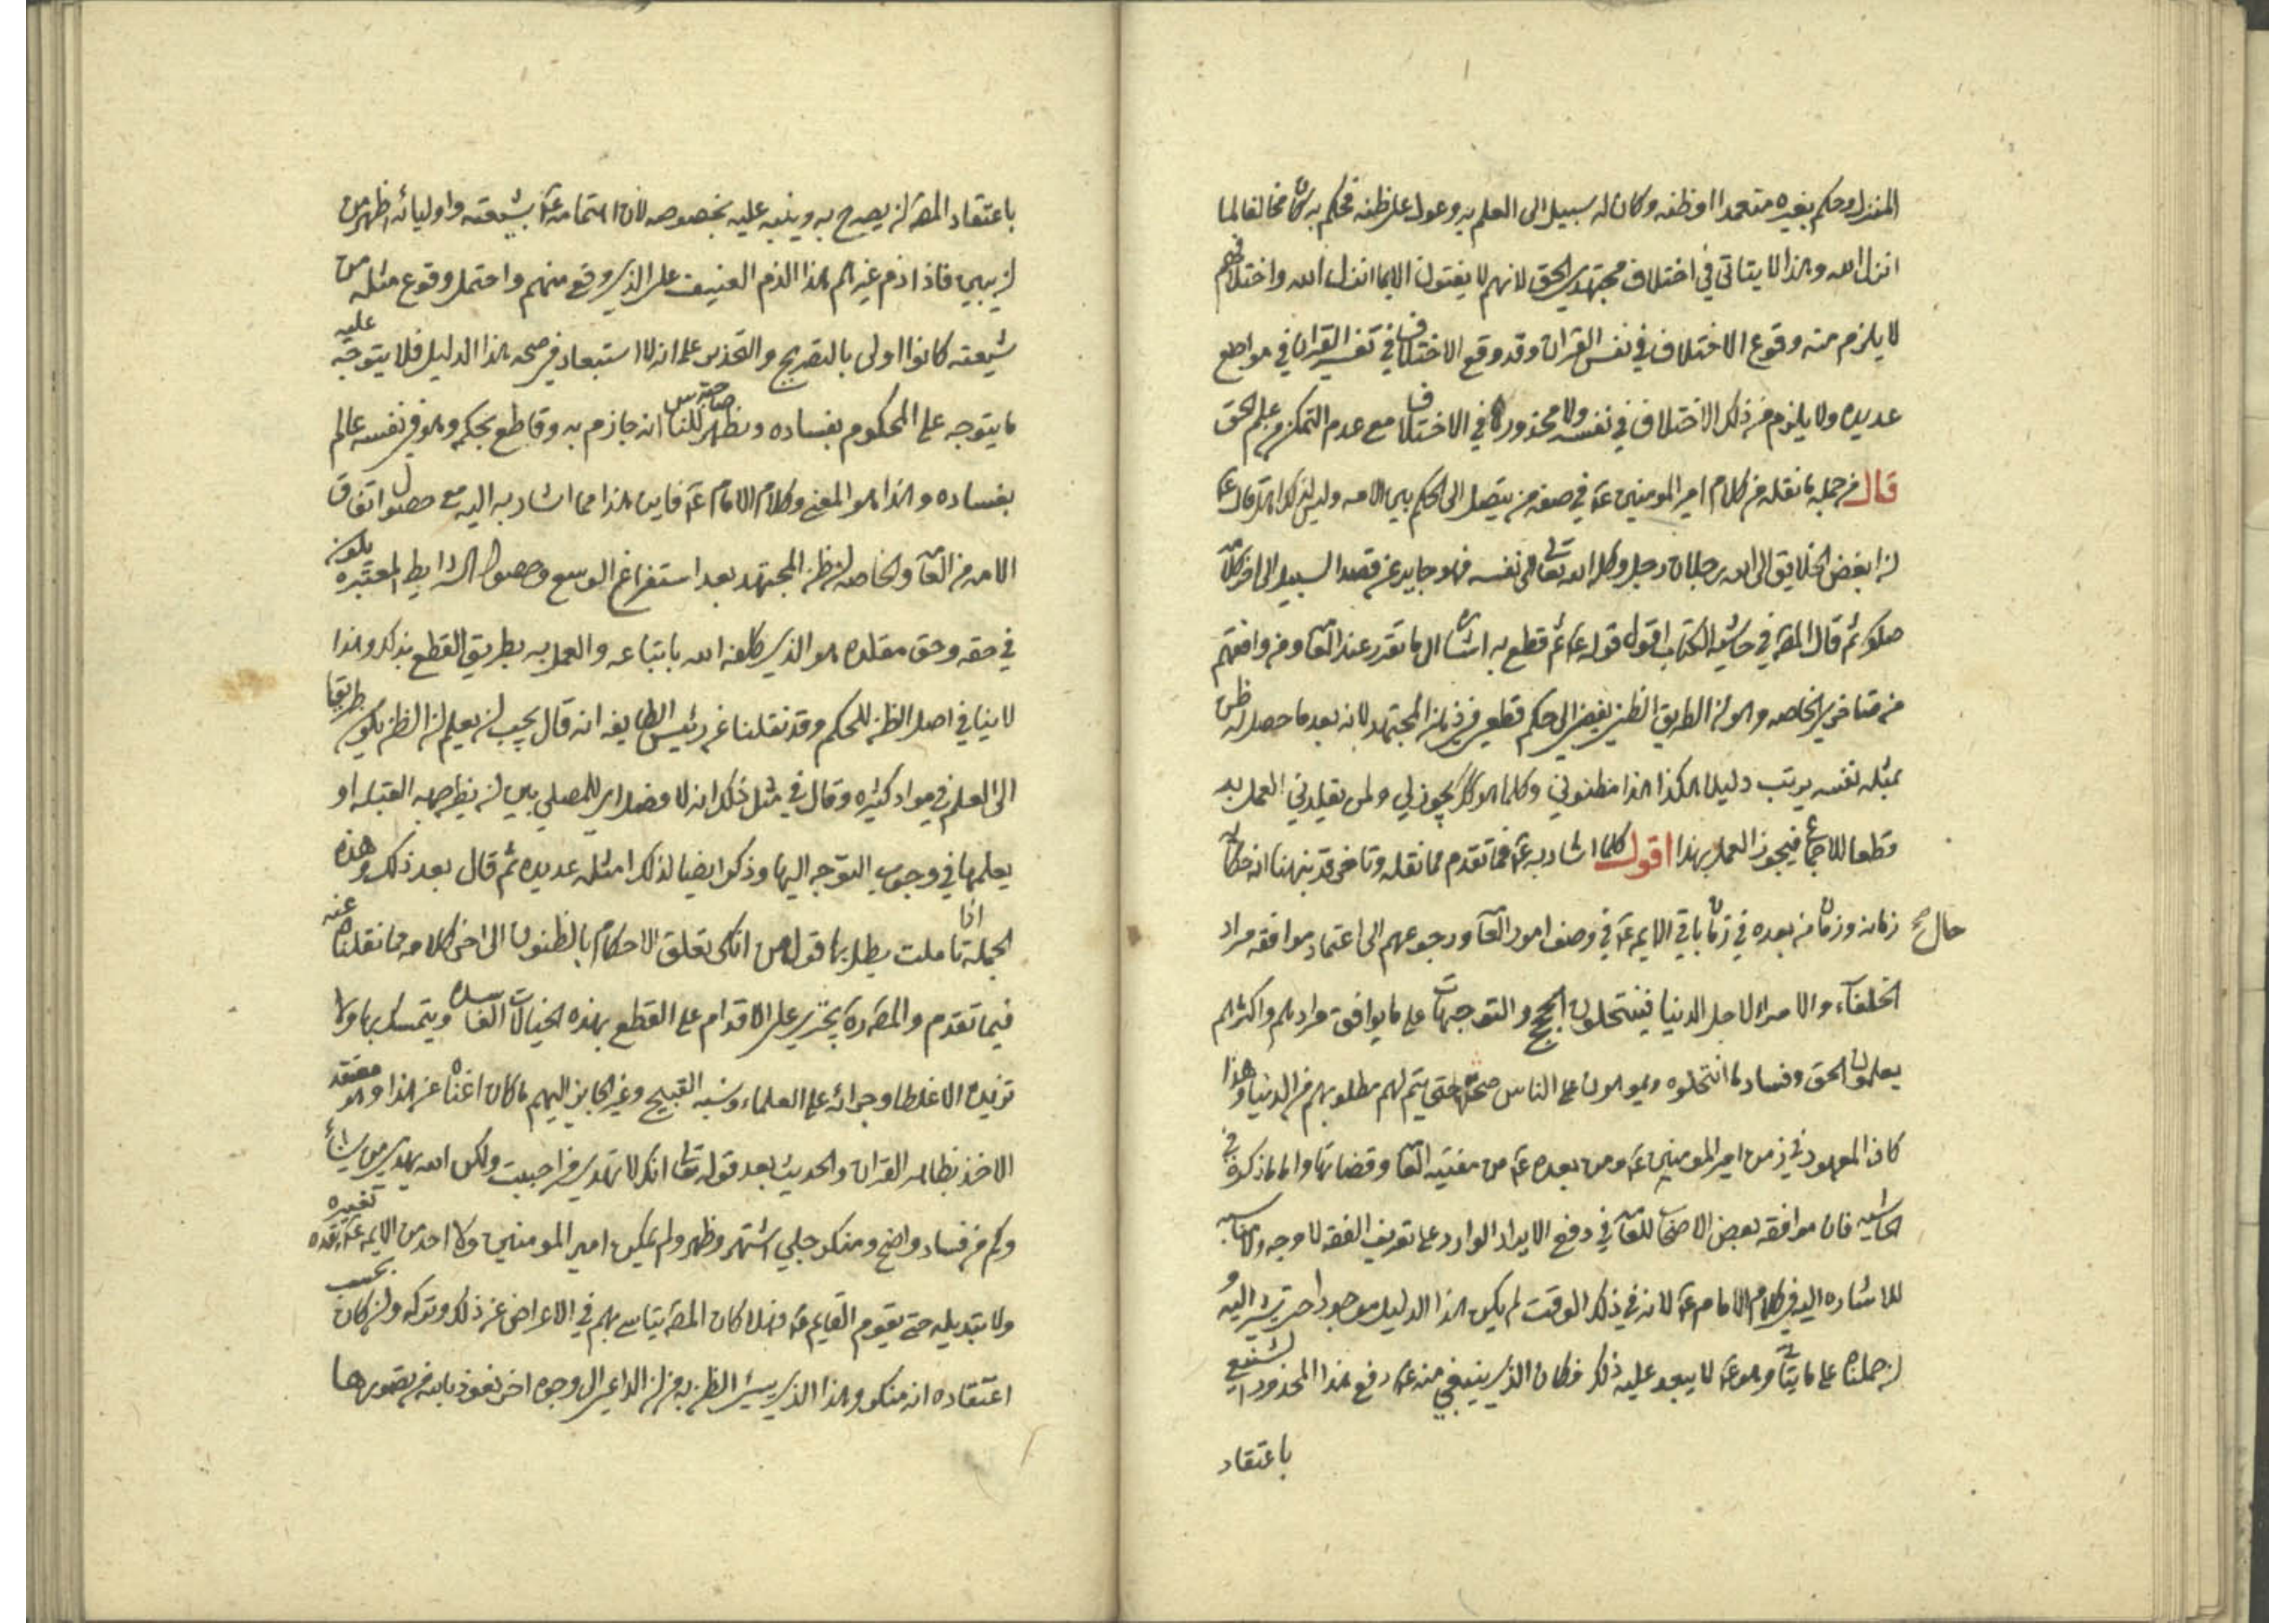 المنزل وحكم بغيره متعمدا او ظنه وكان له سبيل الى العلم به وعول على ظنه فحكم به كان مخالفا لما
انزل الله وهذا لا يتاتى في اختلاف مجتهدي الحق لانهم لا يفتون الا بما انزل الله واختلافهم
لا يلزم منه وقوع الاختلاف في نفس القران وقد وقع الاختلاف في تفسير القران في مواضع
عديده ولا يلزم من ذلك الاختلاف في نفسه ولا محذور في الاختلاف مع عدم التمكن من علم الحق
قال من جمله ما نقله من كلام امير المومنين عة في صفه من يتصل الى الحكم بين الامه وليس لذلك اهل قال عة
ان ابغض الخلايق الى الله رجلان رجل وكله الله تعالى الى نفسه فهو جاير عن قصد السبيل الى اخر كلامه
صلوك ثم قال المصّ في حاشية الكتاب اقول قوله عة ثم قطع به اشاره الى ما تقرر عند العامه ومن وافقهم
من متاخري الخاصه وهو ان الطريق الظني يفضي الى حكم قطعي في ذهن المجتهد لانه بعد ما حصل له ظن
بمثله نفسه يرتب دليلا هكذا هذا مظنوني وكلما هو كك يجوز لي ولمن يقلدني العمل به
قطعا للاجماع فيجوز العمل بهذا اقول كلما اشار به عة فما تقدم مما نقله وتاخر قد نبهنا انه حكايه
حال صح زمانه وزمان من بعده في زمان باقي الايمه عة في وصف امور العامه ورجوعهم الى اعتماد موافقه مراد
الخلفاء والامراء لاجل الدنيا فينتحلون الحجج والتوجيهات على ما يوافق مرادهم واكثرهم
يعلمون الحق وفساد ما انتحلوه ويموهون على الناس صحته حتى يتم لهم مطلوبهم من الدنيا وهذا
كان المعهود في زمن امير المومنين عة ومن بعده عة من مفتيه العامه وقضاتها واما ما ذكره في
الحاشيه فان موافقه بعض الاصحاب للعامه في دفع الايراد الوارد على تعريف الفقه لا وجه ولا مناسبه
للاشاره اليه في كلام الامام عة لانه في ذلك الوقت لم يكن هذا الدليل موجودا حتى يشير اليه و
ان حملناه على ما يتاتى وهو عة لا يبعد عليه ذلك فكان الذي ينبغي منه عة دفع هذا المحذور الشنيع
باعتقاد
باعتقاد المصّ ان يصرح به وينبه عليه بخصوصه لان اهتمامه عة بشيعته واوليائه اظهر من
ان يبين فاذا ذم غيرهم هذا الذم العنيف على الذي وقع منهم واحتمل وقوع مثله من
شيعته كانوا اولى بالتصريح والتحذير على انه لا استبعاد في صحه هذا الدليل فلا يتوجه عليه
ما يتوجه على المحكوم بفساده ويظهر للناس انه جازم به وقاطع بحكمه وهو في نفسه عالم
بفساده وهذا هو المعني وكلام الامام عة فاين هذا مما اشار به اليه مع حصول اتفاق
الامه من العامه والخاصه ان ظن المجتهد بعد استفراغ الوسع وحصول الشرايط المعتبره يكون
في حقه وحق مقلده هو الذي كلفه الله باتباعه والعمل به بطريق القطع بذلك وهذا
لا ينافي اصل الظن للحكم وقد نقلنا عن رئيس الطايفه انه قال يجب ان يعلم ان الظن يكون طريقا
الى العلم في مواد كثيره وقال في مثل ذلك انه لا فصل اى للمصلي بين ان يظن جهه القبله او
يعلمها في وجوب التوجه اليها وذكر ايضا لذلك امثله عديده ثم قال بعد ذلك وهذه
الجمله اذا تاملت بطل بها قول من انكر تعلق الاحكام بالظنون الى اخر كلامه مما نقلناه عنه
فيما تقدم والمصّ ره يجتري على الاقدام على القطع بهذه الخيالات الفاسده ويتمسك بها ولا
تزيده الا غلطا وجراه على العلماء ونسبه القبيح وغير الجايز اليهم ما كان اغناه عن هذا وهو معتقد
الاخذ بظاهر القران والحديث بعد قوله تعالى انك لا تهدي من احببت ولكن الله يهدي من يشاء
وكم من فساد واضح ومنكر جلي اشتهر وظهر ولم يمكن امير المومنين ولا احد من الايمه عة بعده تغييره
ولا تبديله حتى يقوم القايم عة فهلا كان المصّ يتاسى بهم في الاعراض عن ذلك وتركه وان كان بحسب
اعتقاده انه منكر وهذا الذي يسيئ الظن به من ان الداعي الى وجوه اخر نعوذ بالله من تصورها